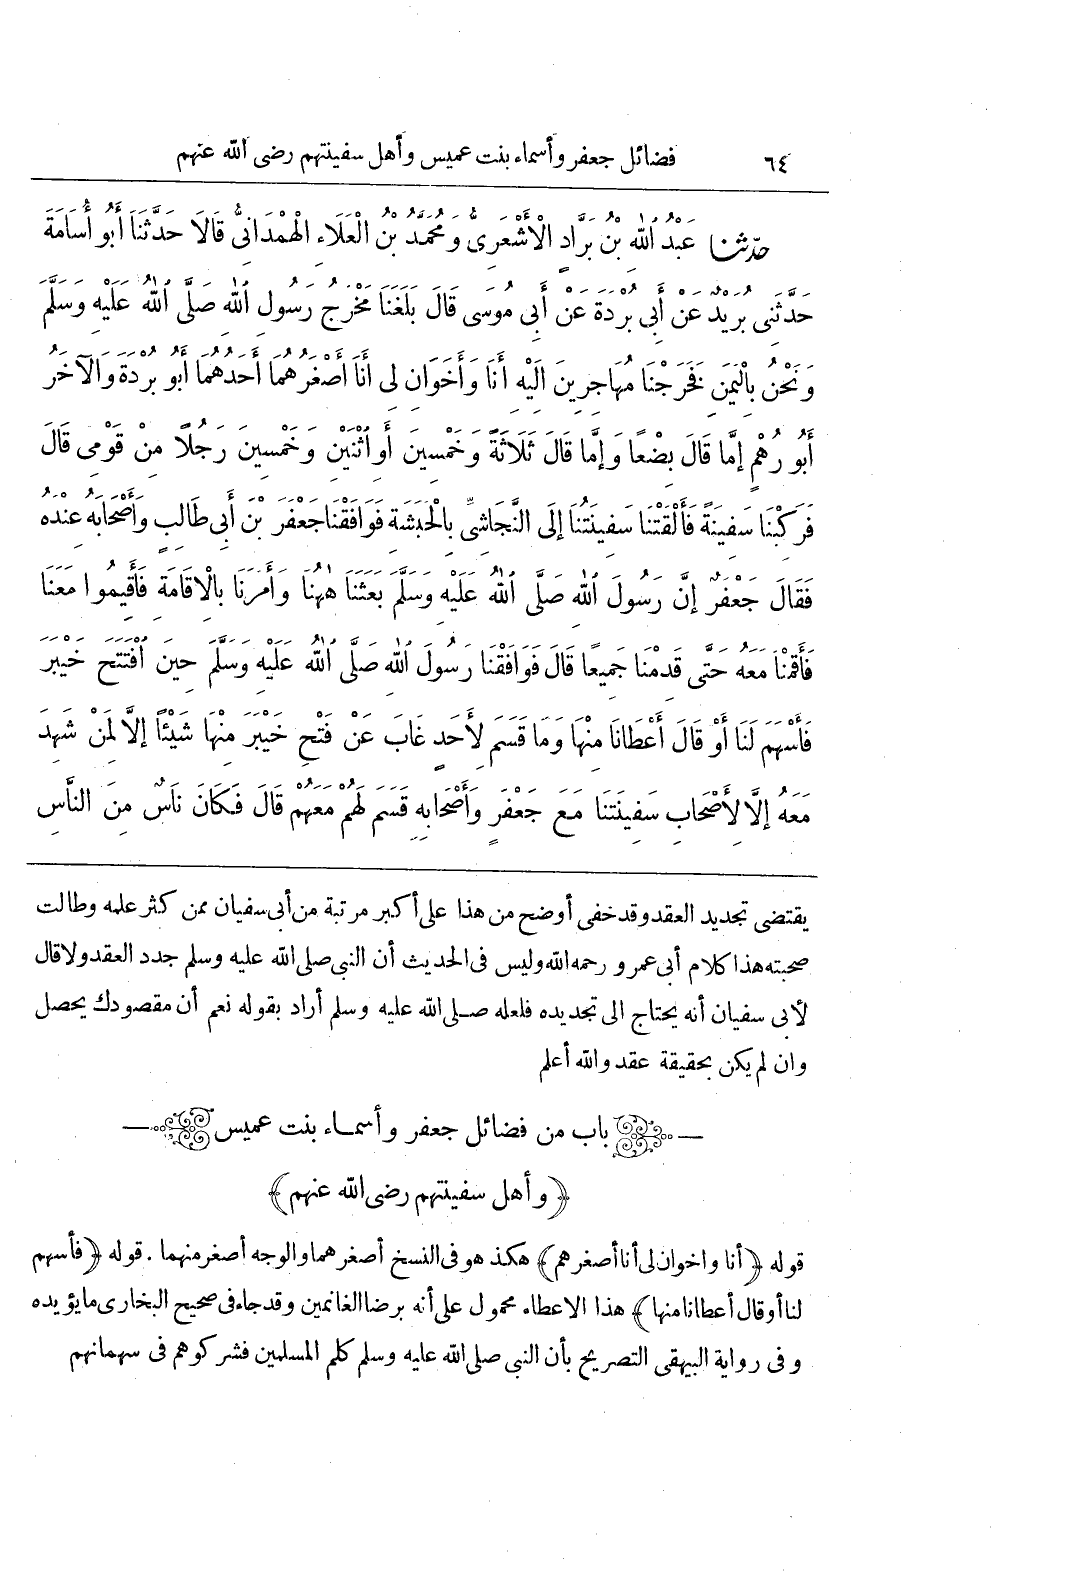 ٦٤ فضائل جعفر وأسماء بنت عميس وأهل سفينتهم رضى الله عنهم
حدّثنا عَبْدُ اللهِ بْنُ بَرَّادٍ الْأَشْعَرِىُّ وَمُحَمَّدُ بْنُ الْعَلَاءِ الْهَمْدَانِىُّ قَالَا حَدَّثَنَا أَبُو أُسَامَةَ
حَدَّثَنِى بُرَيْدٌ عَنْ أَبِى بُرْدَةَ عَنْ أَبِى مُوسَى قَالَ بَلَغَنَا مَخْرَجُ رَسُولِ اللهِ صَلَّى اللهُ عَلَيْهِ وَسَلَّمَ
وَنَحْنُ بِالْيَمَنِ فَخَرَجْنَا مُهَاجِرِينَ الَيْهِ أَنَا وَأَخَوَانِ لِى أَنَا أَصْغَرُهُمَا أَحَدُهُمَا أَبُو بُرْدَةَ وَالْآخَرُ
أَبُو رُهْمٍ إِمَّا قَالَ بِضْعًا وَإِمَّا قَالَ ثَلَاثَةً وَخَمْسِينَ أَوِ اثْنَيْنِ وَخَمْسِينَ رَجُلًا مِنْ قَوْمِى قَالَ
فَرَكِبْنَا سَفِينَةً فَأَلْقَتْنَا سَفِينَتُنَا إِلَى النَّجَاشِىِّ بِالْحَبَشَةِ فَوَافَقْنَا جَعْفَرَ بْنَ أَبِى طَالِبٍ وَأَصْحَابَهُ عِنْدَهُ
فَقَالَ جَعْفَرٌ إِنَّ رَسُولَ اللهِ صَلَّى اللهُ عَلَيْهِ وَسَلَّمَ بَعَثَنَا هٰهُنَا وَأَمَرَنَا بِالْاِقَامَةِ فَأَقِيمُوا مَعَنَا
فَأَقَمْنَا مَعَهُ حَتَّى قَدِمْنَا جَمِيعًا قَالَ فَوَافَقْنَا رَسُولَ اللهِ صَلَّى اللهُ عَلَيْهِ وَسَلَّمَ حِينَ افْتَتَحَ خَيْبَرَ
فَأَسْهَمَ لَنَا أَوْ قَالَ أَعْطَانَا مِنْهَا وَمَا قَسَمَ لِأَحَدٍ غَابَ عَنْ فَتْحِ خَيْبَرَ مِنْهَا شَيْئًا إِلَّا لِمَنْ شَهِدَ
مَعَهُ إِلَّا لِأَصْحَابِ سَفِينَتِنَا مَعَ جَعْفَرٍ وَأَصْحَابِهِ قَسَمَ لَهُمْ مَعَهُمْ قَالَ فَكَانَ نَاسٌ مِنَ النَّاسِ
يقتضى تجديد العقد وقد خفى أوضح من هذا على أكبر مرتبة من أبى سفيان ممن كثر علمه وطالت
صحبته هذا كلام أبى عمرو رحمه الله وليس فى الحديث أن النبى صلى الله عليه وسلم جدد العقد ولا قال
لأبى سفيان أنه يحتاج الى تجديده فلعله صلى الله عليه وسلم أراد بقوله نعم أن مقصودك يحصل
وان لم يكن بحقيقة عقد والله أعلم
باب من فضائل جعفر وأسماء بنت عميس
﴿وأهل سفينتهم رضى الله عنهم﴾
قوله ﴿أنا واخوان لى أنا أصغرهم﴾ هكذ هو فى النسخ أصغرهما والوجه أصغر منهما . قوله ﴿فأسهم
لنا أو قال أعطانا منها﴾ هذا الاعطاء محمول على أنه برضا الغانمين وقد جاء فى صحيح البخارى ما يؤيده
وفى رواية البيهقى التصريح بأن النبى صلى الله عليه وسلم كلم المسلمين فشركوهم فى سهمانهم